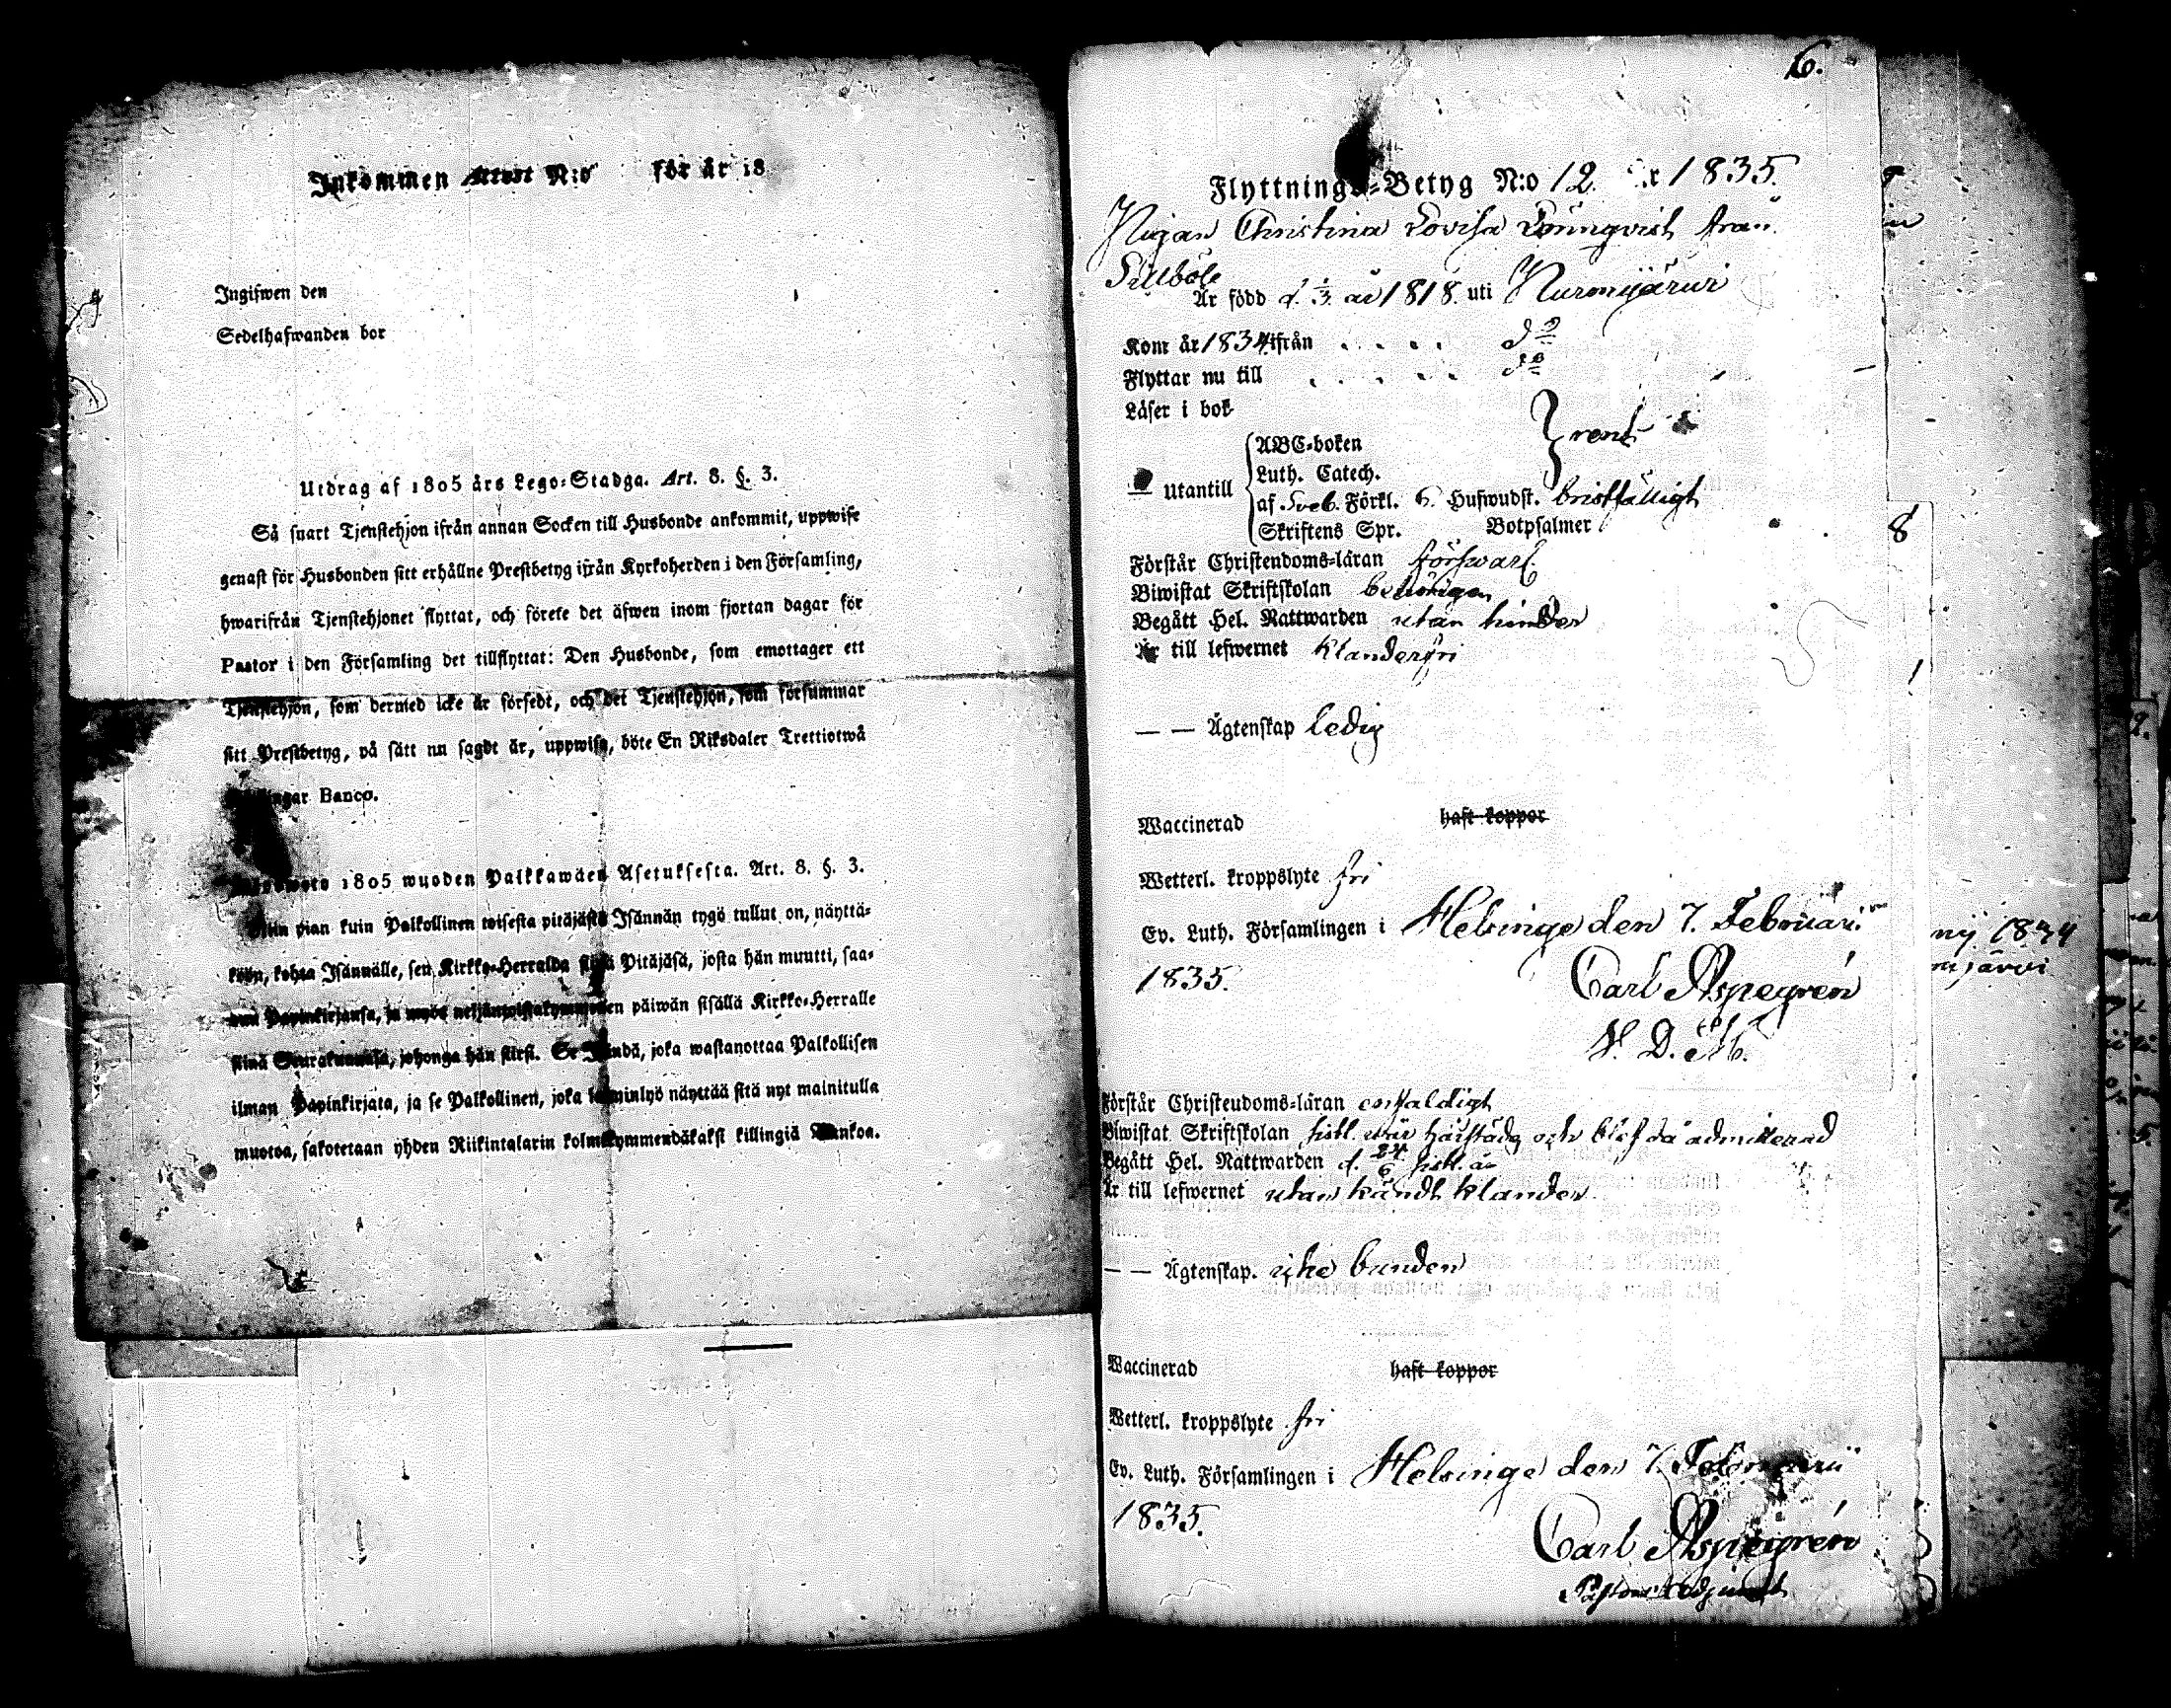 Inkommen Attest N:o för år 18
Ingifwen den
Sedelhafwanden bor
Utdrag af 1805 års Lego-Stadga. Art. 8. §. 3.
Så snart Tjenstehjon ifrån annan Socken till Husbonde ankommit, uppwise
genast för Husbonden sitt erhållne Prestbetyg ifrån Kyrkoherden i den Församling,
hwarifrån Tjenstehjonet flyttat, och förete det äfwen inom fjortan dagar för
Pastor i den Församling det tillflyttat: Den Husbonde, som emottager ett
Tjenstehjon, som dermed icke är försedt, och det Tjenstehjon, som försummar
sitt Prestbetyg, på sätt nu sagdt är, uppwisa, böte En Riksdaler Trettiotwå
Banco.
1805 wuoden Palkkawäen Asetuksesta. Art. 8. §. 3.
Niin pian kuin Palkollinen toisesta pitäjästä Isännän tygö tullut on, näyttä-
köön, kohta Isännälle, sen Kirkko-Herralda siinä Pitäjäsä, josta hän muutti, saa-
Papinkirjansa, ja myös neljäntoistakymmenen päiwän sisällä Kirkko-Herralle
siinä Seurakunnasa, johonga hän siirsi. Se Isändä, joka wastanottaa Palkollisen
ilman Papinkirjata, ja se Palkollinen, joka laiminlyö näyttää sitä nyt mainitulla
muotoa, sakotetaan yhden Riikintalarin kolmekymmendäkaksi killingiä Bankoa.
6.
Flyttnings-Betyg N:o 12. 1835.
Pigan Christina Lovisa Lönnqvist från
Sillböle
Är född d. 1/3 år 1818. uti Nurmijärvi
Kom år 1834 ifrån . . . . do
Flyttar nu till . . . . . do
Läser i bok
ABC-boken rent
Luth. Catech.
— Utantill
af Sveb. Förkl. 6. Hufwudst. bristfälligt
Skriftens Spr. Botpsalmer
Förstår Christendoms-läran försvarl.
Biwistat Skriftskolan behörigen
Begått Hel. Nattwarden utan hinder
Är till lefwernet klanderfri
— — Ägtenskap ledig
Waccinerad haft koppor
Wetterl. kroppslyte fri
Ev. Luth. Församlingen i Helsinge den 7. Februarii
1835.
Carl Aspegrén
V. D. M.
Förstår Christendoms-läran enfaldigt
Biwistat Skriftskolan sistl. härstädes och blef då admitterad
Begått Hel. Nattwarden d. 24/6 sistl. år
Är till lefwernet utan kändt klander
— — Ägtenskap. icke bunden
Waccinerad haft koppor
Wetterl. kroppslyte fri
Ev. Luth. Församlingen i Helsinge den 7. Februarii
1835.
Carl Aspegrén
Pastors Adjunct
8
1834